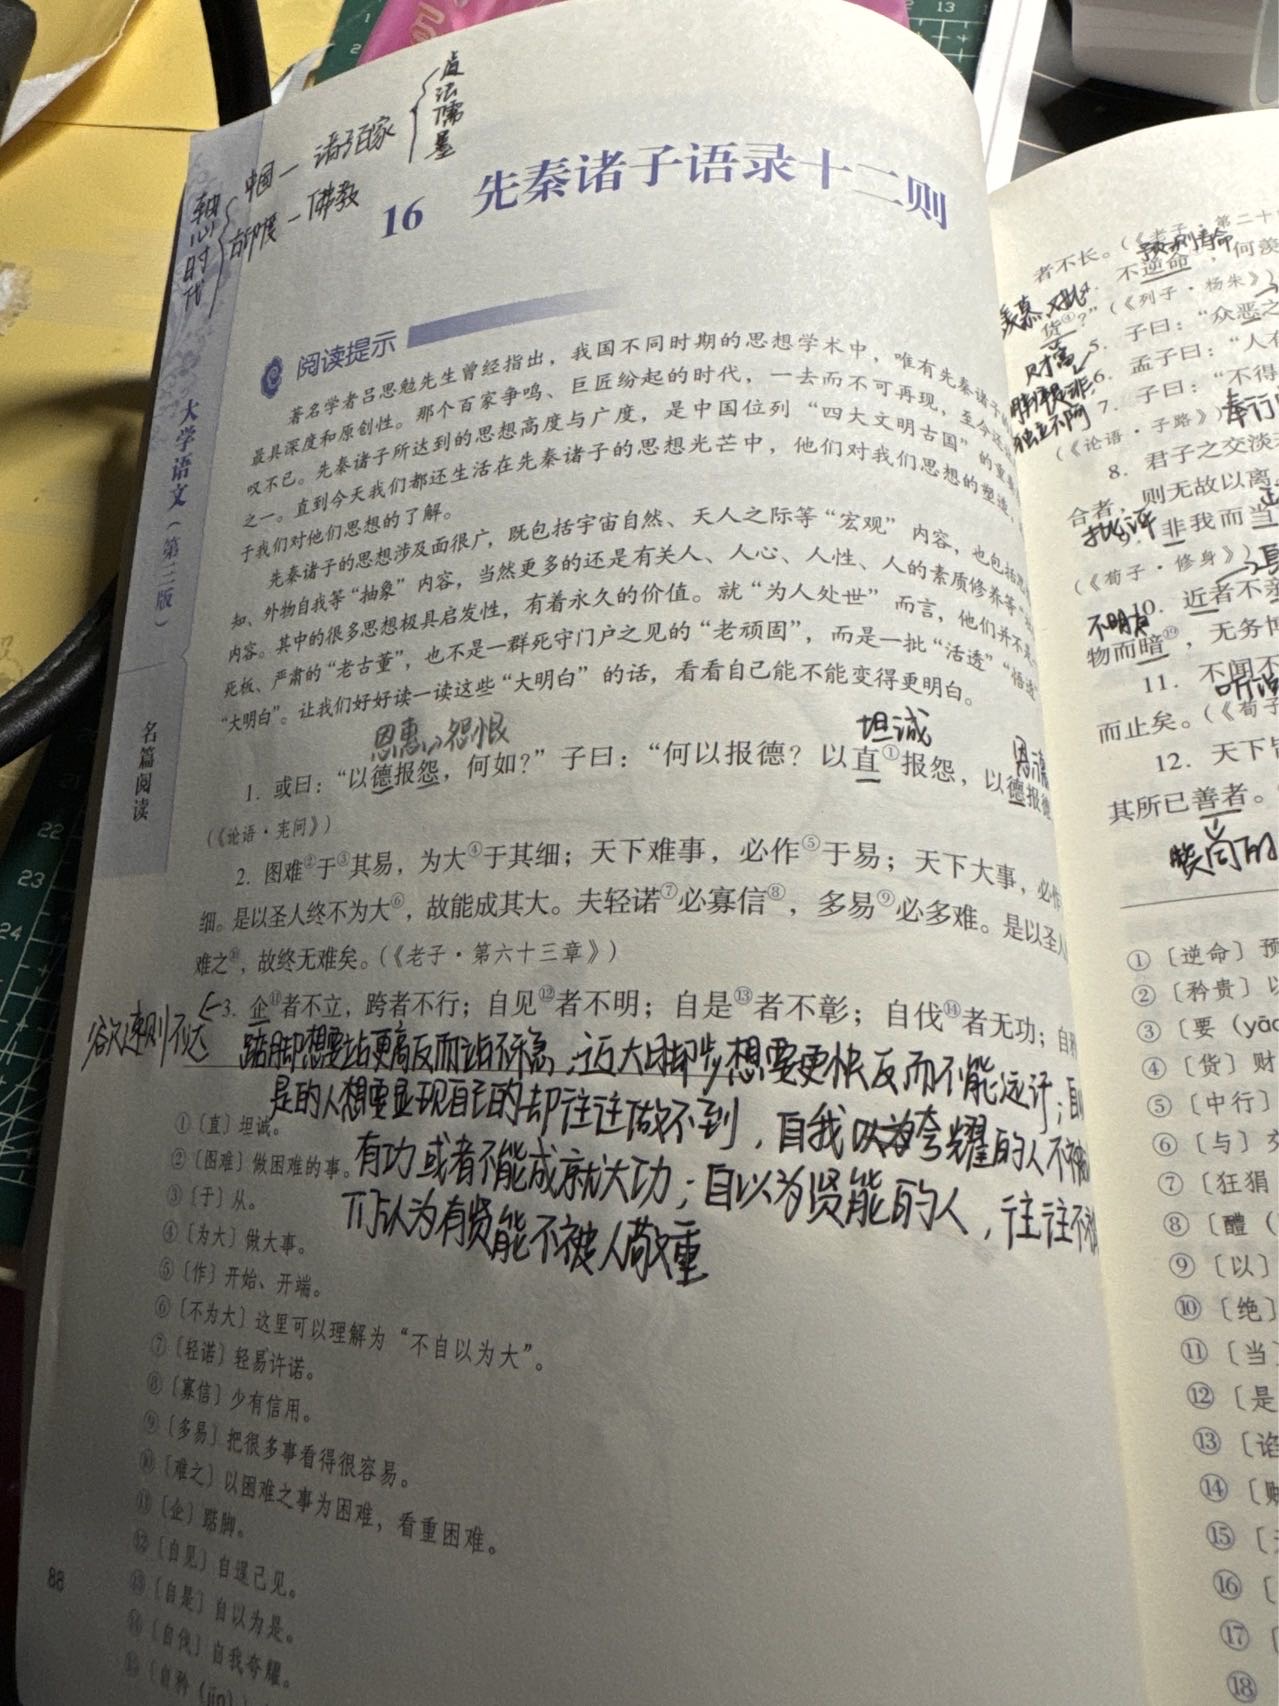 道法儒墨
轴心时代
中国—诸子百家
古印度—佛教
16 先秦诸子语录十二则
阅读提示
著名学者吕思勉先生曾经指出，我国不同时期的思想学术中，唯有先秦诸子
最具深度和原创性。那个百家争鸣、巨匠纷起的时代，一去而不可再现，至今还
叹不已。先秦诸子所达到的思想高度与广度，是中国位列“四大文明古国”的重要
之一。直到今天我们都还生活在先秦诸子的思想光芒中，他们对我们思想的塑造，
于我们对他们思想的了解。
先秦诸子的思想涉及面很广，既包括宇宙自然、天人之际等“宏观”内容，也包括
知、外物自我等“抽象”内容，当然更多的还是有关人、人心、人性、人的素质修养等
内容。其中的很多思想极具启发性，有着永久的价值。就“为人处世”而言，他们并不
死板、严肃的“老古董”，也不是一群死守门户之见的“老顽固”，而是一批“活透”“悟透”
“大明白”。让我们好好读一读这些“大明白”的话，看看自己能不能变得更明白。
恩惠 怨恨 坦诚
1. 或曰：“以德报怨，何如？”子曰：“何以报德？以直①报怨，以德报德
（《论语·宪问》）
2. 图难②于③其易，为大④于其细；天下难事，必作⑤于易；天下大事，必作
细。是以圣人终不为大⑥，故能成其大。夫轻诺⑦必寡信⑧，多易⑨必多难。是以圣人
难之⑩，故终无难矣。（《老子·第六十三章》）
3. 企⑪者不立，跨者不行；自见⑫者不明；自是⑬者不彰；自伐⑭者无功；自
欲速则不达
踮脚想要站更高反而站不稳，迈大闭脚步想要更快反而不能远行；自
是的人想要显现自己的却往往做不到，自我以为夸耀的人不被
有功或者不能成就大功；自以为贤能的人，往往不被
们认为有贤能不被人敬重
①〔直〕坦诚。
②〔图难〕做困难的事。
③〔于〕从。
④〔为大〕做大事。
⑤〔作〕开始、开端。
⑥〔不为大〕这里可以理解为“不自以为大”。
⑦〔轻诺〕轻易许诺。
⑧〔寡信〕少有信用。
⑨〔多易〕把很多事看得很容易。
⑩〔难之〕以困难之事为困难，看重困难。
⑪〔企〕踮脚。
⑫〔自见〕自逞己见。
⑬〔自是〕自以为是。
⑭〔自伐〕自我夸耀。
⑮〔自矜（jīn）〕
88
大学语文（第三版）
名篇阅读
者不长。（《老子·第二十
不逆命，何羡
羡慕
货④？”（《列子·杨朱》）
财富
5. 子曰：“众恶之
6. 孟子曰：“人有
7. 子曰：“不得
独立不阿
（《论语·子路》）
8. 君子之交淡
合者，则无故以离
批评
非我而当
（《荀子·修身》）
10. 近者不亲
不明白
物而暗⑲，无务博
11. 不闻不
而止矣。（《荀子
12. 天下皆
其所已善者。
①〔逆命〕预
②〔矜贵〕以
③〔要（yāo
④〔货〕财
⑤〔中行〕
⑥〔与〕交
⑦〔狂狷
⑧〔醴（
⑨〔以〕
⑩〔绝〕
⑪〔当〕
⑫〔是
⑬〔谄
⑭
⑮
⑯
⑰
⑱